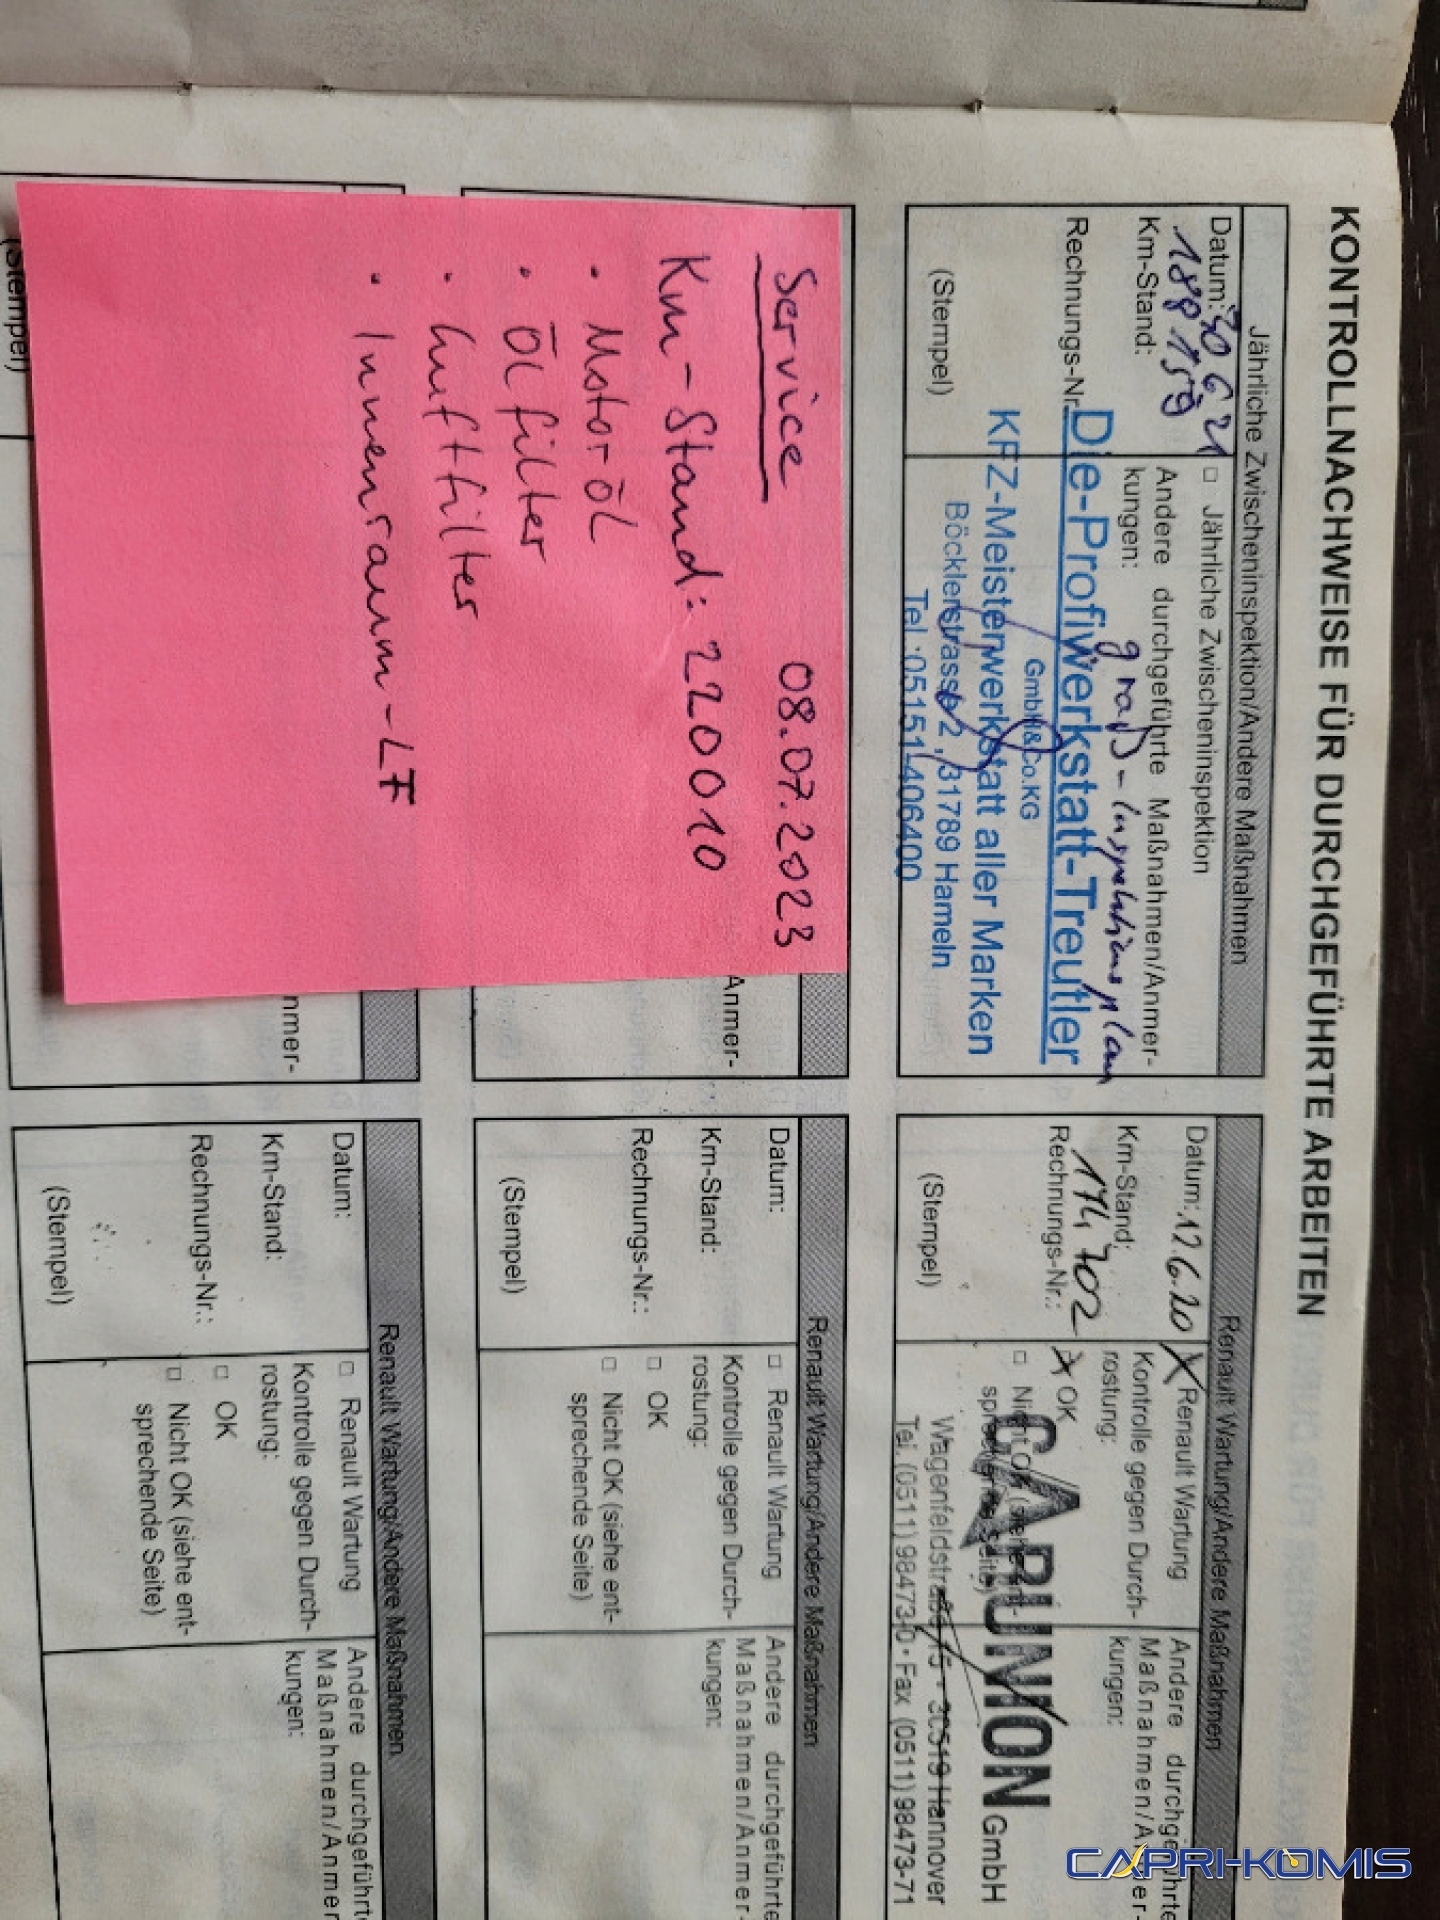 KONTROLLNACHWEISE FÜR DURCHGEFÜHRTE ARBEITEN
Jährliche Zwischeninspektion/Andere Maßnahmen
Datum: 30 6 21
188 159
Km-Stand:
Rechnungs-Nr.
(Stempel)
□ Jährliche Zwischeninspektion
Andere durchgeführte Maßnahmen/Anmer-
kungen:
groß-Inspektionsplan
Die-Profiwerkstatt-Treutler
GmbH&Co.KG
KFZ-Meisterwerkstatt aller Marken
Böcklerstrasse 2, 31789 Hameln
Tel.:05151-406400
Renault Wartung/Andere Maßnahmen
Datum: 12.6.20
Km-Stand:
174 702
Rechnungs-Nr.:
(Stempel)
X Renault Wartung
Kontrolle gegen Durch-
rostung:
X OK
□ Nicht OK (siehe ent-
sprechende Seite)
Andere durchgeführte
Maßnahmen/Anmer-
kungen:
CARUNION GmbH
Wagenfeldstraße 15 • 30519 Hannover
Tel. (0511) 98473-0 • Fax (0511) 98473-71
Service 08.07.2023
Km-Stand: 220010
• Motoröl
• Ölfilter
• Luftfilter
• Innenraum-LF
Anmer-
nmer-
(Stempel)
Renault Wartung/Andere Maßnahmen
Datum:
Km-Stand:
Rechnungs-Nr.:
(Stempel)
□ Renault Wartung
Kontrolle gegen Durch-
rostung:
□ OK
□ Nicht OK (siehe ent-
sprechende Seite)
Andere durchgeführte
Maßnahmen/Anmer-
kungen:
Renault Wartung/Andere Maßnahmen
Datum:
Km-Stand:
Rechnungs-Nr.:
(Stempel)
□ Renault Wartung
Kontrolle gegen Durch-
rostung:
□ OK
□ Nicht OK (siehe ent-
sprechende Seite)
Andere durchgeführte
Maßnahmen/Anmer
kungen:
CAPRI-KOMIS